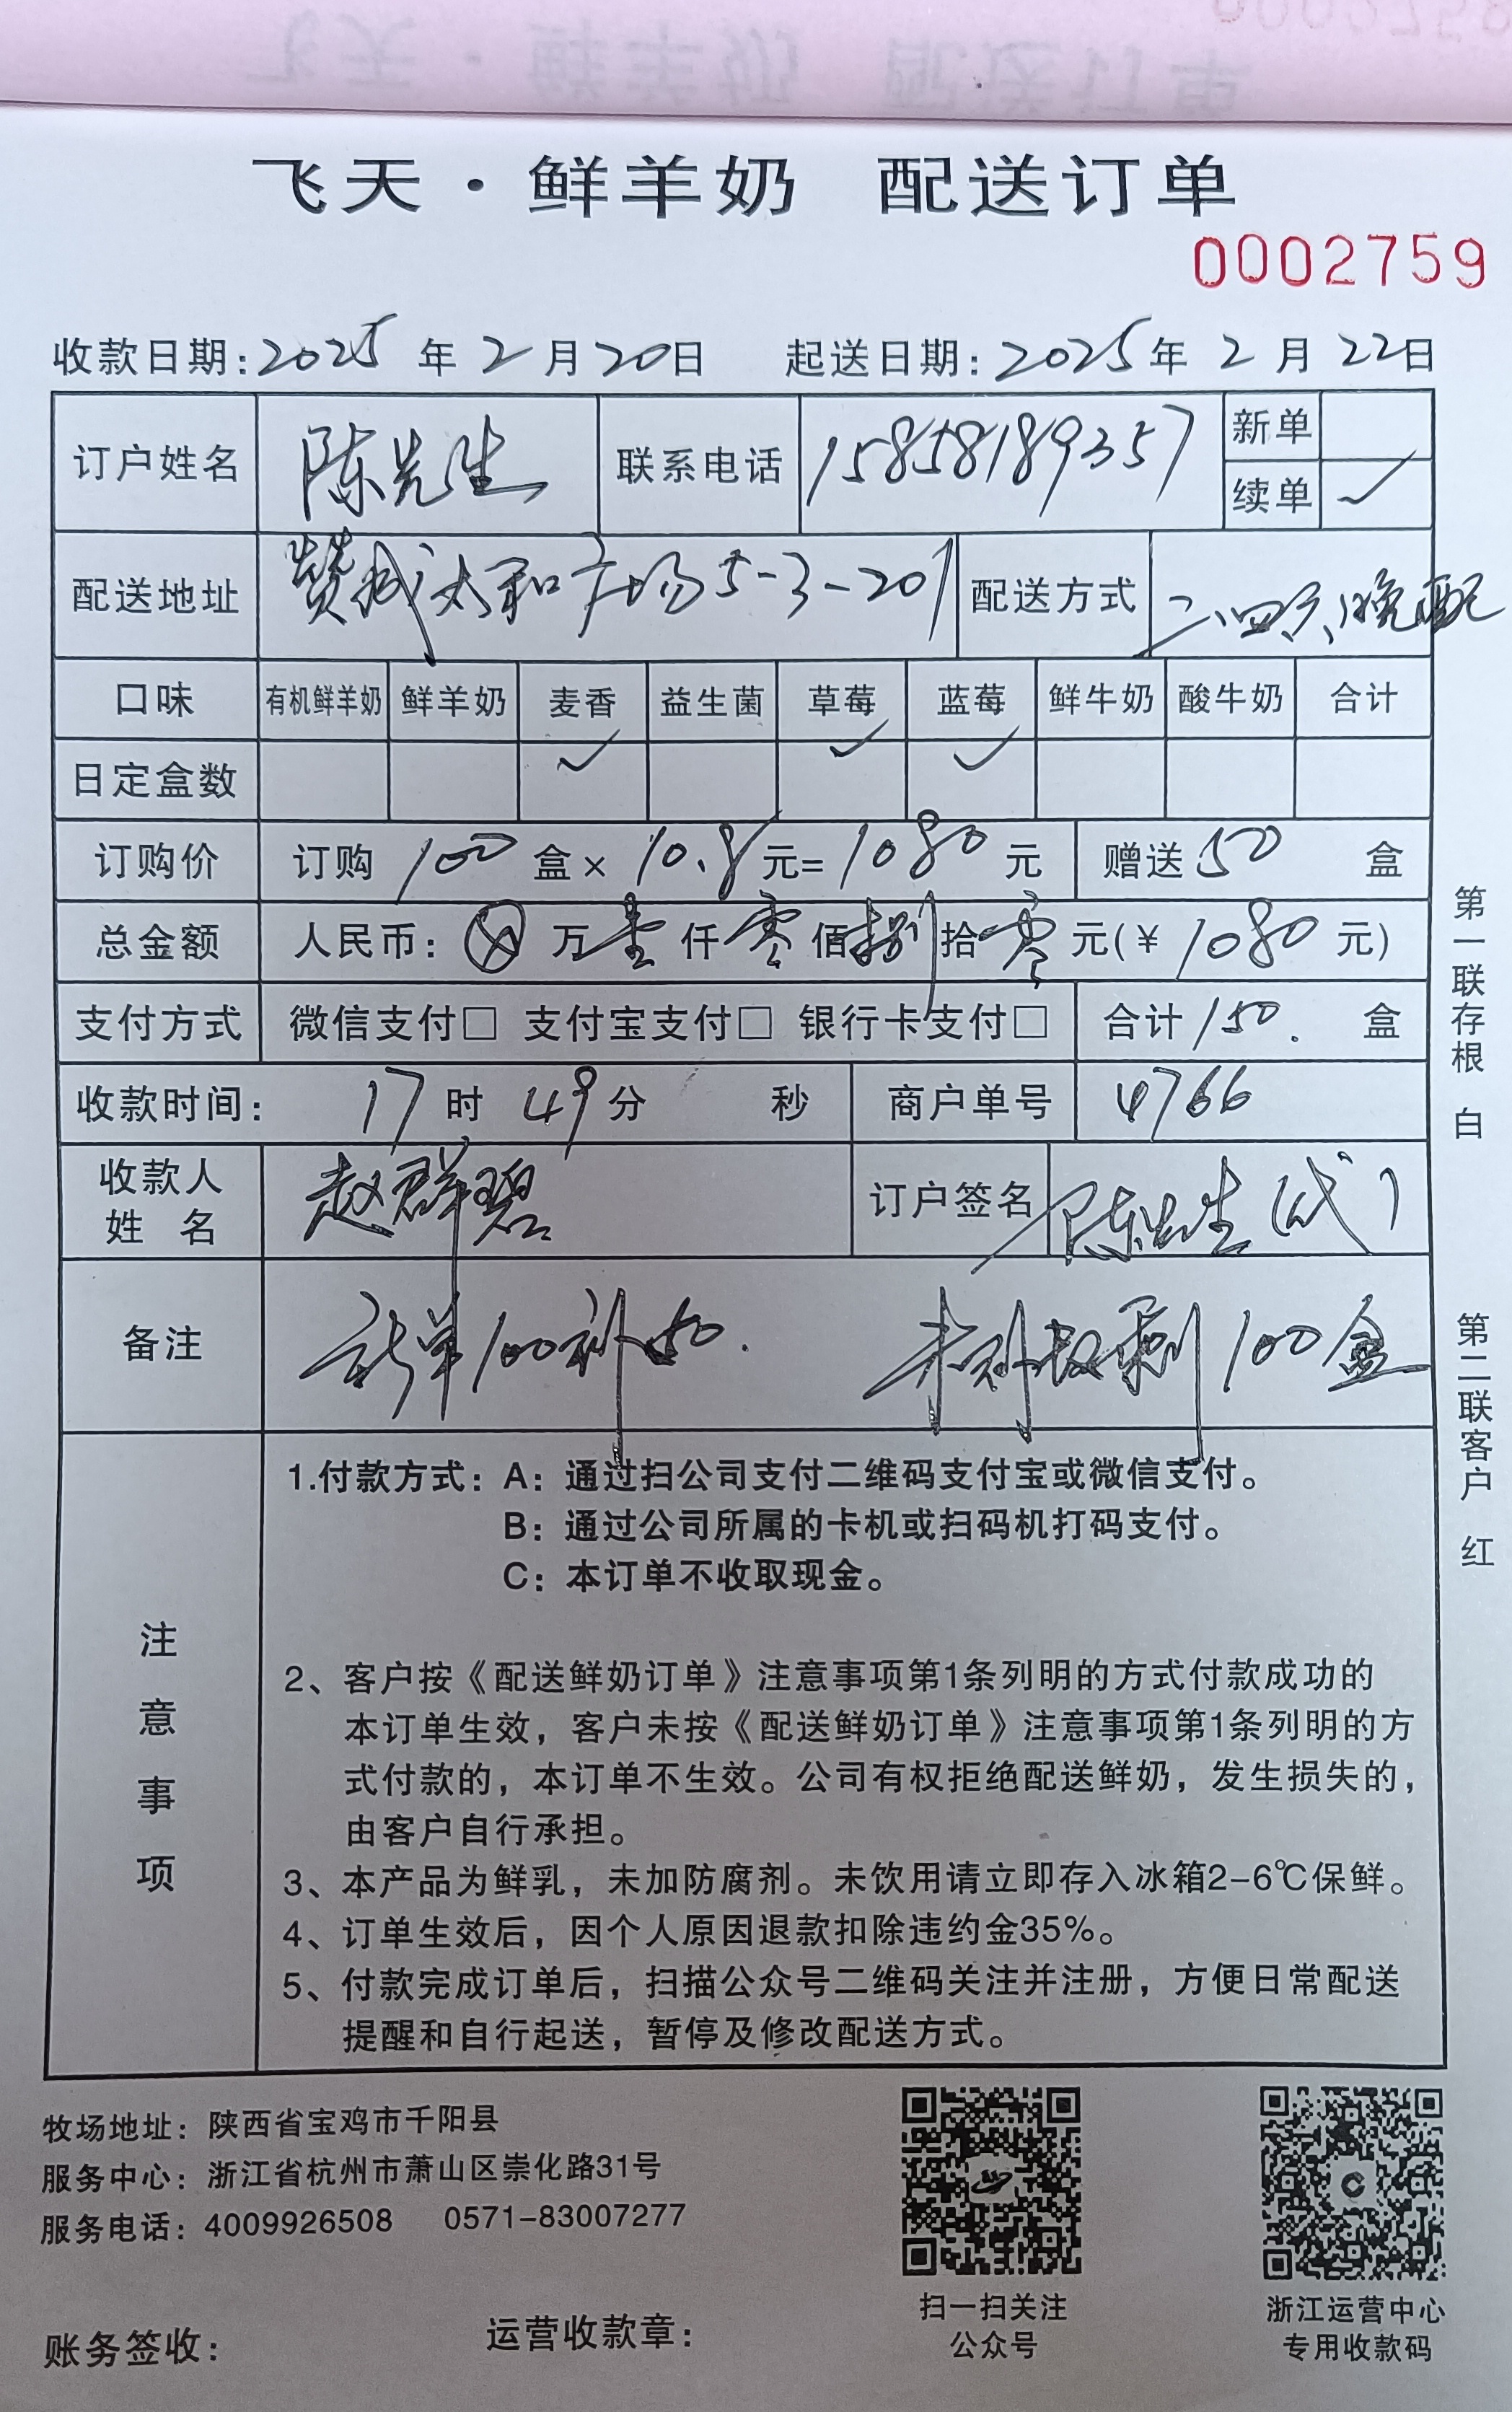 飞天·鲜羊奶 配送订单
0002759
收款日期:2025年2月20日 起送日期:2025年2月22日
订户姓名 陈先生 联系电话 15858189357 新单
续单 ✓
配送地址 赞成太和广场5-3-201 配送方式 二、四、六、晚配
口味 有机鲜羊奶 鲜羊奶 麦香 益生菌 草莓 蓝莓 鲜牛奶 酸牛奶 合计
日定盒数 ✓ ✓ ✓
订购价 订购100盒×10.8元=1080元 赠送50盒
总金额 人民币:⊗万壹仟零佰捌拾零元(¥1080元)
支付方式 微信支付□ 支付宝支付□ 银行卡支付□ 合计150.盒
收款时间: 17时49分 秒 商户单号 4766
收款人姓名 赵群碧 订户签名 陈先生(代)
备注 订单100补50. 未补权剩100盒
注意事项
1.付款方式:A:通过扫公司支付二维码支付宝或微信支付。
B:通过公司所属的卡机或扫码机打码支付。
C:本订单不收取现金。
2、客户按《配送鲜奶订单》注意事项第1条列明的方式付款成功的
本订单生效,客户未按《配送鲜奶订单》注意事项第1条列明的方
式付款的,本订单不生效。公司有权拒绝配送鲜奶,发生损失的,
由客户自行承担。
3、本产品为鲜乳,未加防腐剂。未饮用请立即存入冰箱2-6℃保鲜。
4、订单生效后,因个人原因退款扣除违约金35%。
5、付款完成订单后,扫描公众号二维码关注并注册,方便日常配送
提醒和自行起送,暂停及修改配送方式。
第一联存根 白
第二联客户 红
牧场地址:陕西省宝鸡市千阳县
服务中心:浙江省杭州市萧山区崇化路31号
服务电话:4009926508 0571-83007277
扫一扫关注
公众号
浙江运营中心
专用收款码
账务签收: 运营收款章: